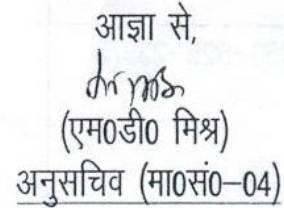 आज्ञा से,
(एम0डी0 मिश्र)
अनुसचिव (मा0सं0–04)